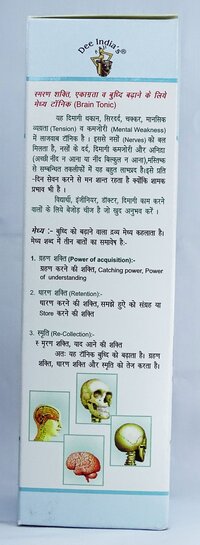 Dee India's®
स्मरण शक्ति, एकाग्रता व बुध्दि बढ़ाने के लिये
मेध्य टॉनिक (Brain Tonic)
यह दिमागी थकान, सिरदर्द, चक्कर, मानसिक
व्यग्रता (Tension) व कमजोरी (Mental Weakness)
में लाजवाब टॉनिक है। इससे नर्सों (Nerves) को बल
मिलता है, नसों के दर्द, दिमागी कमजोरी और अनिद्रा
(अच्छी नींद न आना या नींद बिल्कुल न आना),मस्तिष्क
से सम्बन्धित तकलीफों में यह बहुत लाभप्रद है।इसे प्रति
-दिन सेवन करने से मन शान्त रहता है क्योंकि शामक
प्रभाव भी है ।
विद्यार्थी, इंजीनियर, डॉक्टर, दिमागी काम करने
वालों के लिये बेजोड़ चीज है जो खुद अनुभव करें ।
मेध्य :- बुध्दि को बढ़ाने वाला द्रव्य मेध्य कहलाता है।
मेध्य शब्द में तीन बातों का समावेष है:-
1. ग्रहण शक्ति (Power of acquisition):-
ग्रहण करने की शक्ति, Catching power, Power
of understanding
2. धारण शक्ति (Retention):-
धारण करने की शक्ति, समझे हुऐ को संग्रह या
Store करने की शक्ति
3. स्मृति (Re-Collection):-
स्मरण शक्ति, याद आने की शक्ति
अतः वह टॉनिक बुध्दि को बढ़ाता है। ग्रहण
शक्ति, धारण शक्ति और स्मृति को तेग करता है।